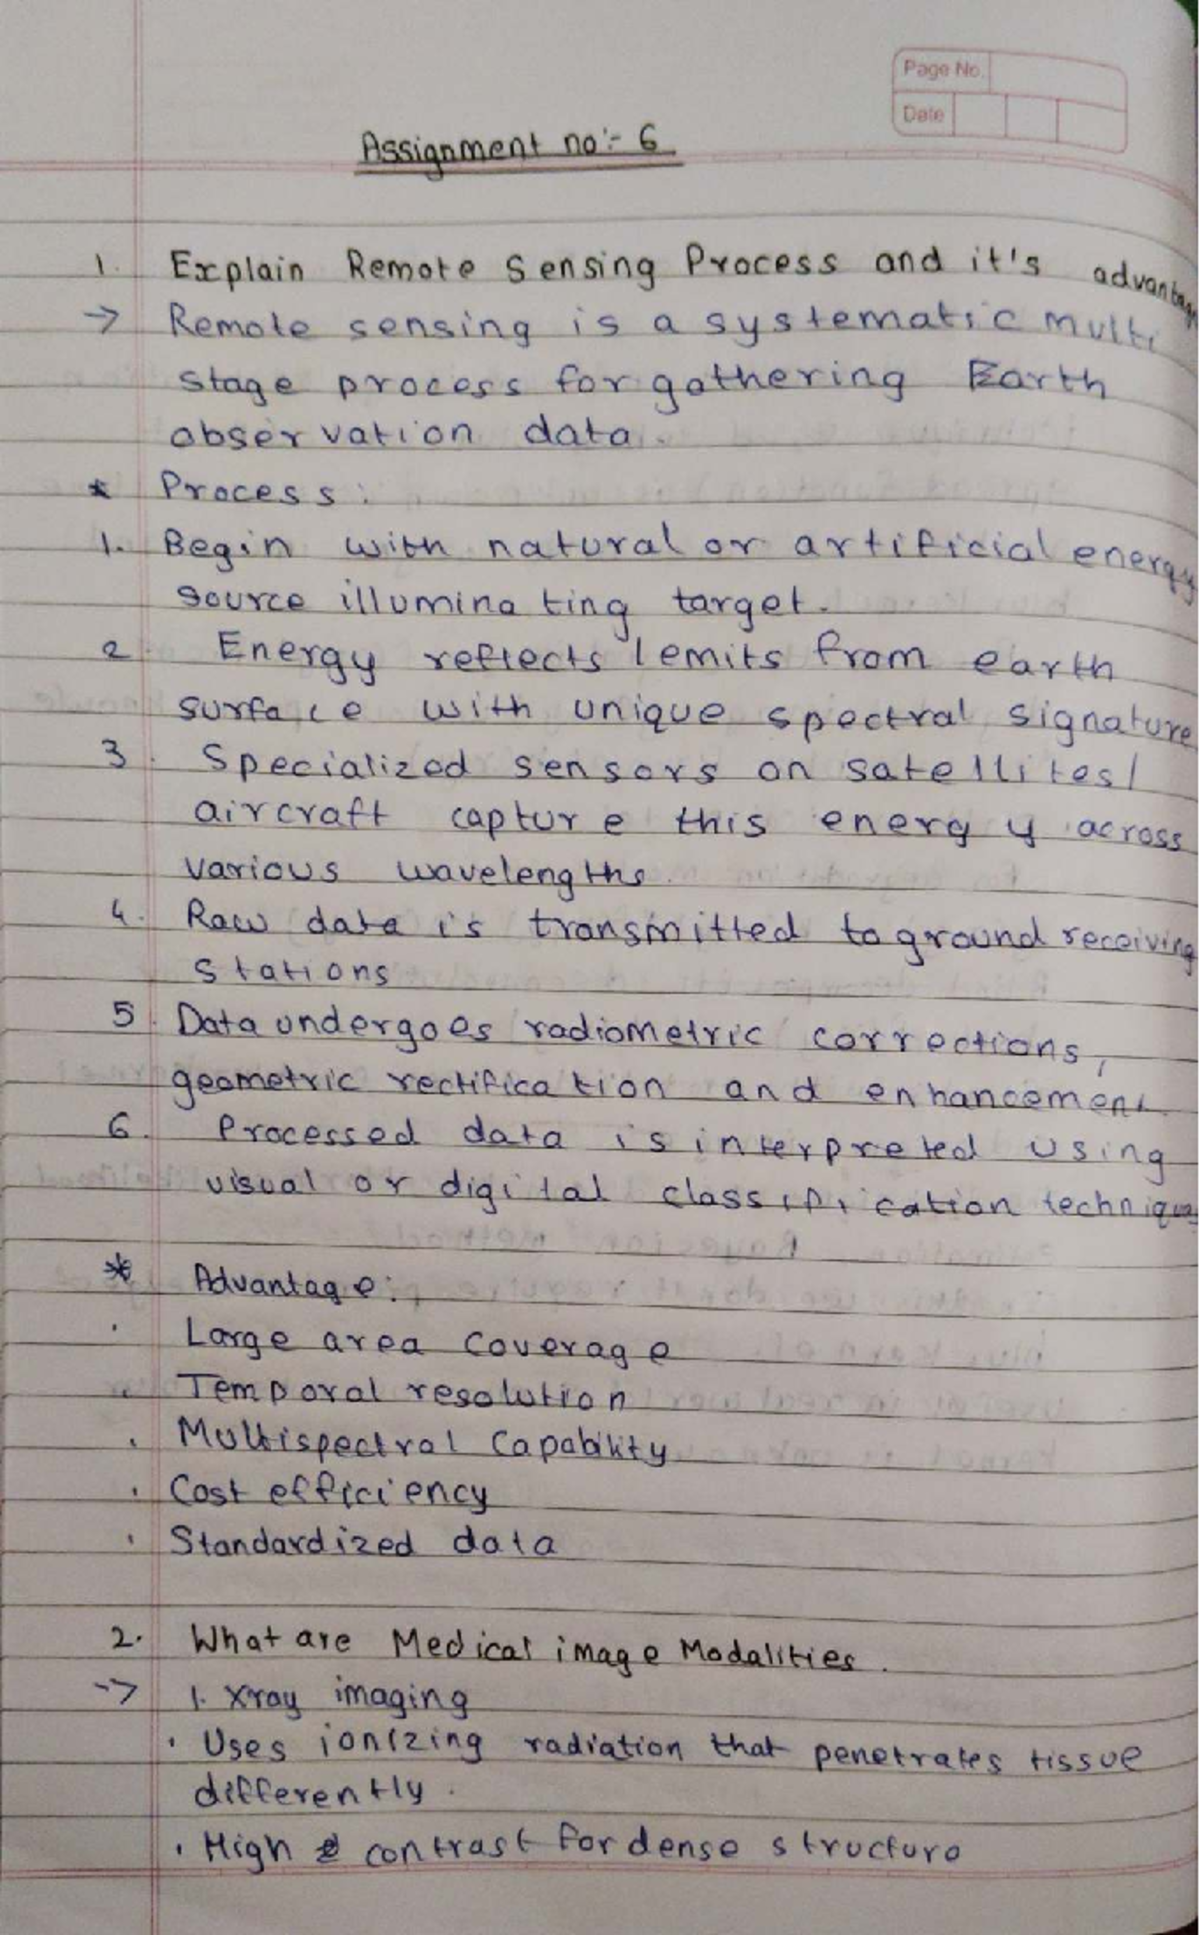 Page No.
Date
Assignment no:- 6
1. Explain Remote Sensing Process and it's advantag
→ Remote sensing is a systematic multi
stage process for gathering Earth
observation data.
* Process:
1. Begin with natural or artificial energy
source illuminating target.
2. Energy reflects/emits from earth
surface with unique spectral signature
3. Specialized sensors on satellites/
aircraft capture this energy across
various wavelengths.
4. Raw data is transmitted to ground receiving
stations
5. Data undergoes radiometric corrections,
geometric rectification and enhancement.
6. Processed data is interpreted using
visual or digital classification technique
* Advantage:
· Large area coverage
· Temporal resolution
· Multispectral Capability
· Cost efficiency
· Standardized data
2. What are Medical image Modalities.
→ 1. Xray imaging
· Uses ionizing radiation that penetrates tissue
differently.
· High contrast for dense structure